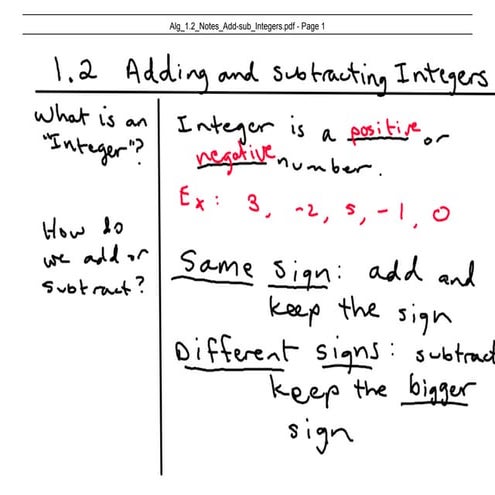 Alg_1.2_Notes_Add-sub_Integers.pdf - Page 1
1.2 Adding and subtracting Integers
What is an
"Integer"?
Integer is a positive or
negative number.
Ex: 3, -2, 5, -1, 0
How do
we add or
subtract?
Same sign: add and
keep the sign
Different signs: subtract
keep the bigger
sign